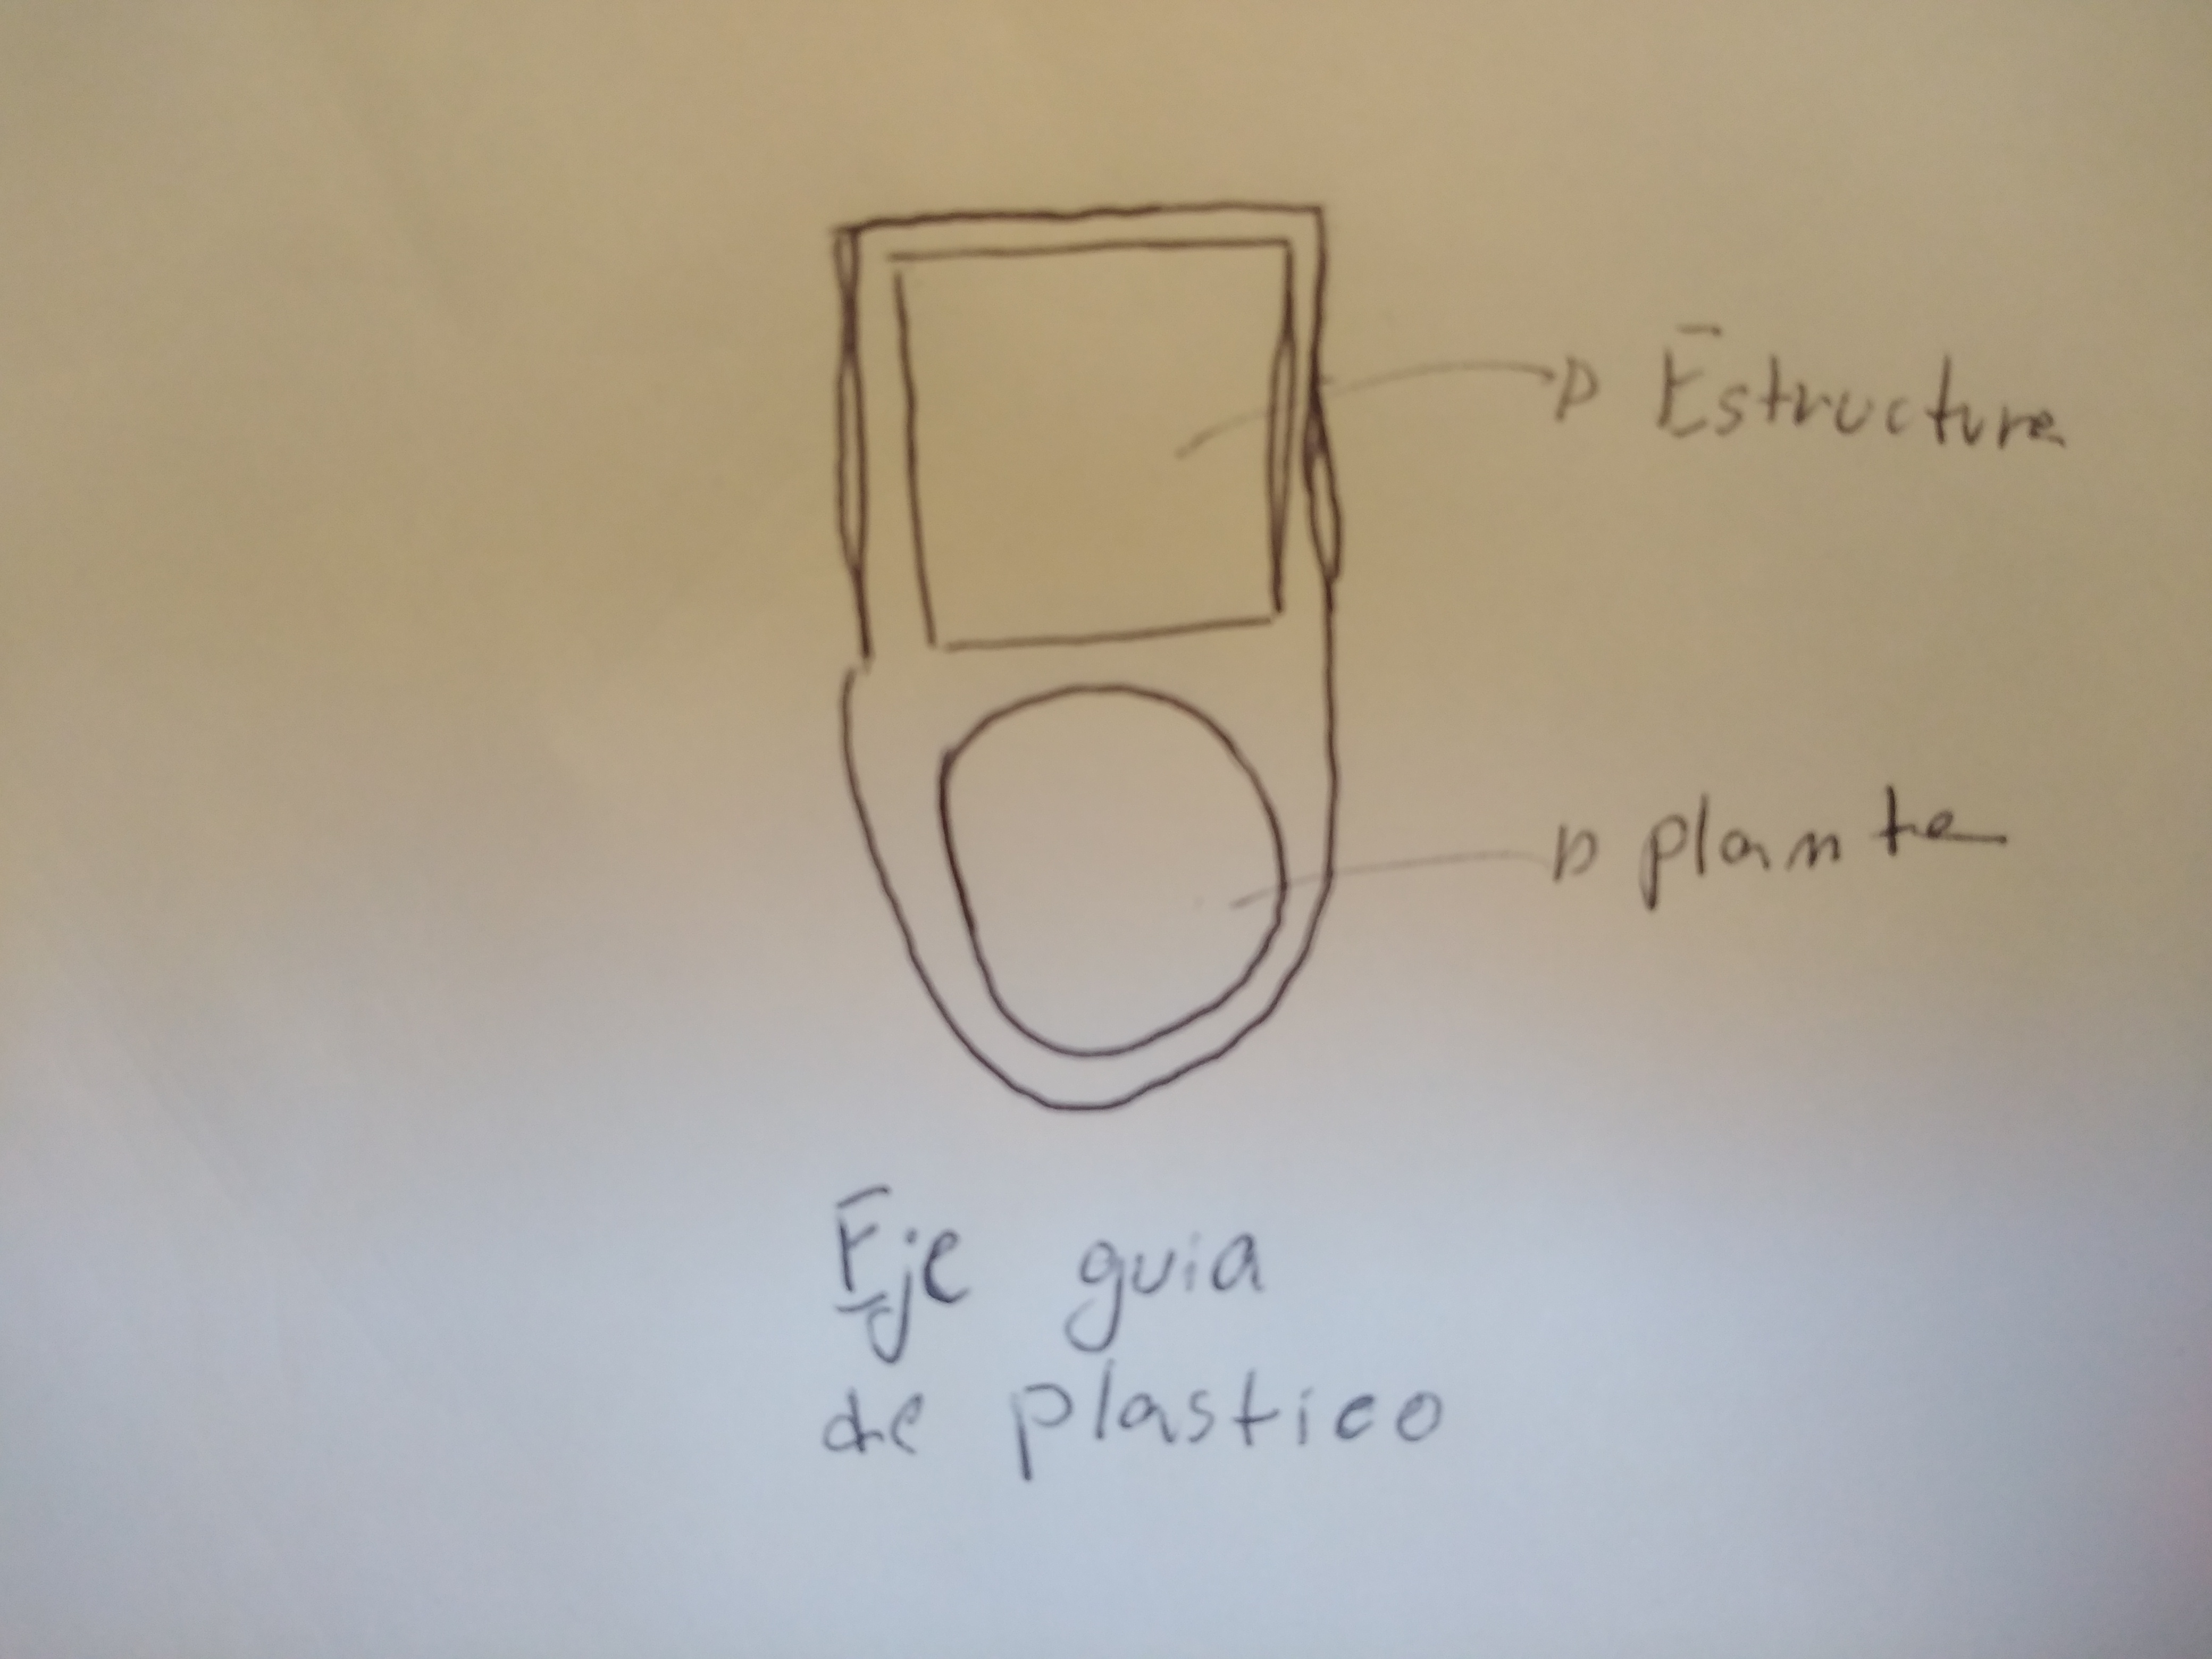 Estructura
planta
Eje guia
de plastico